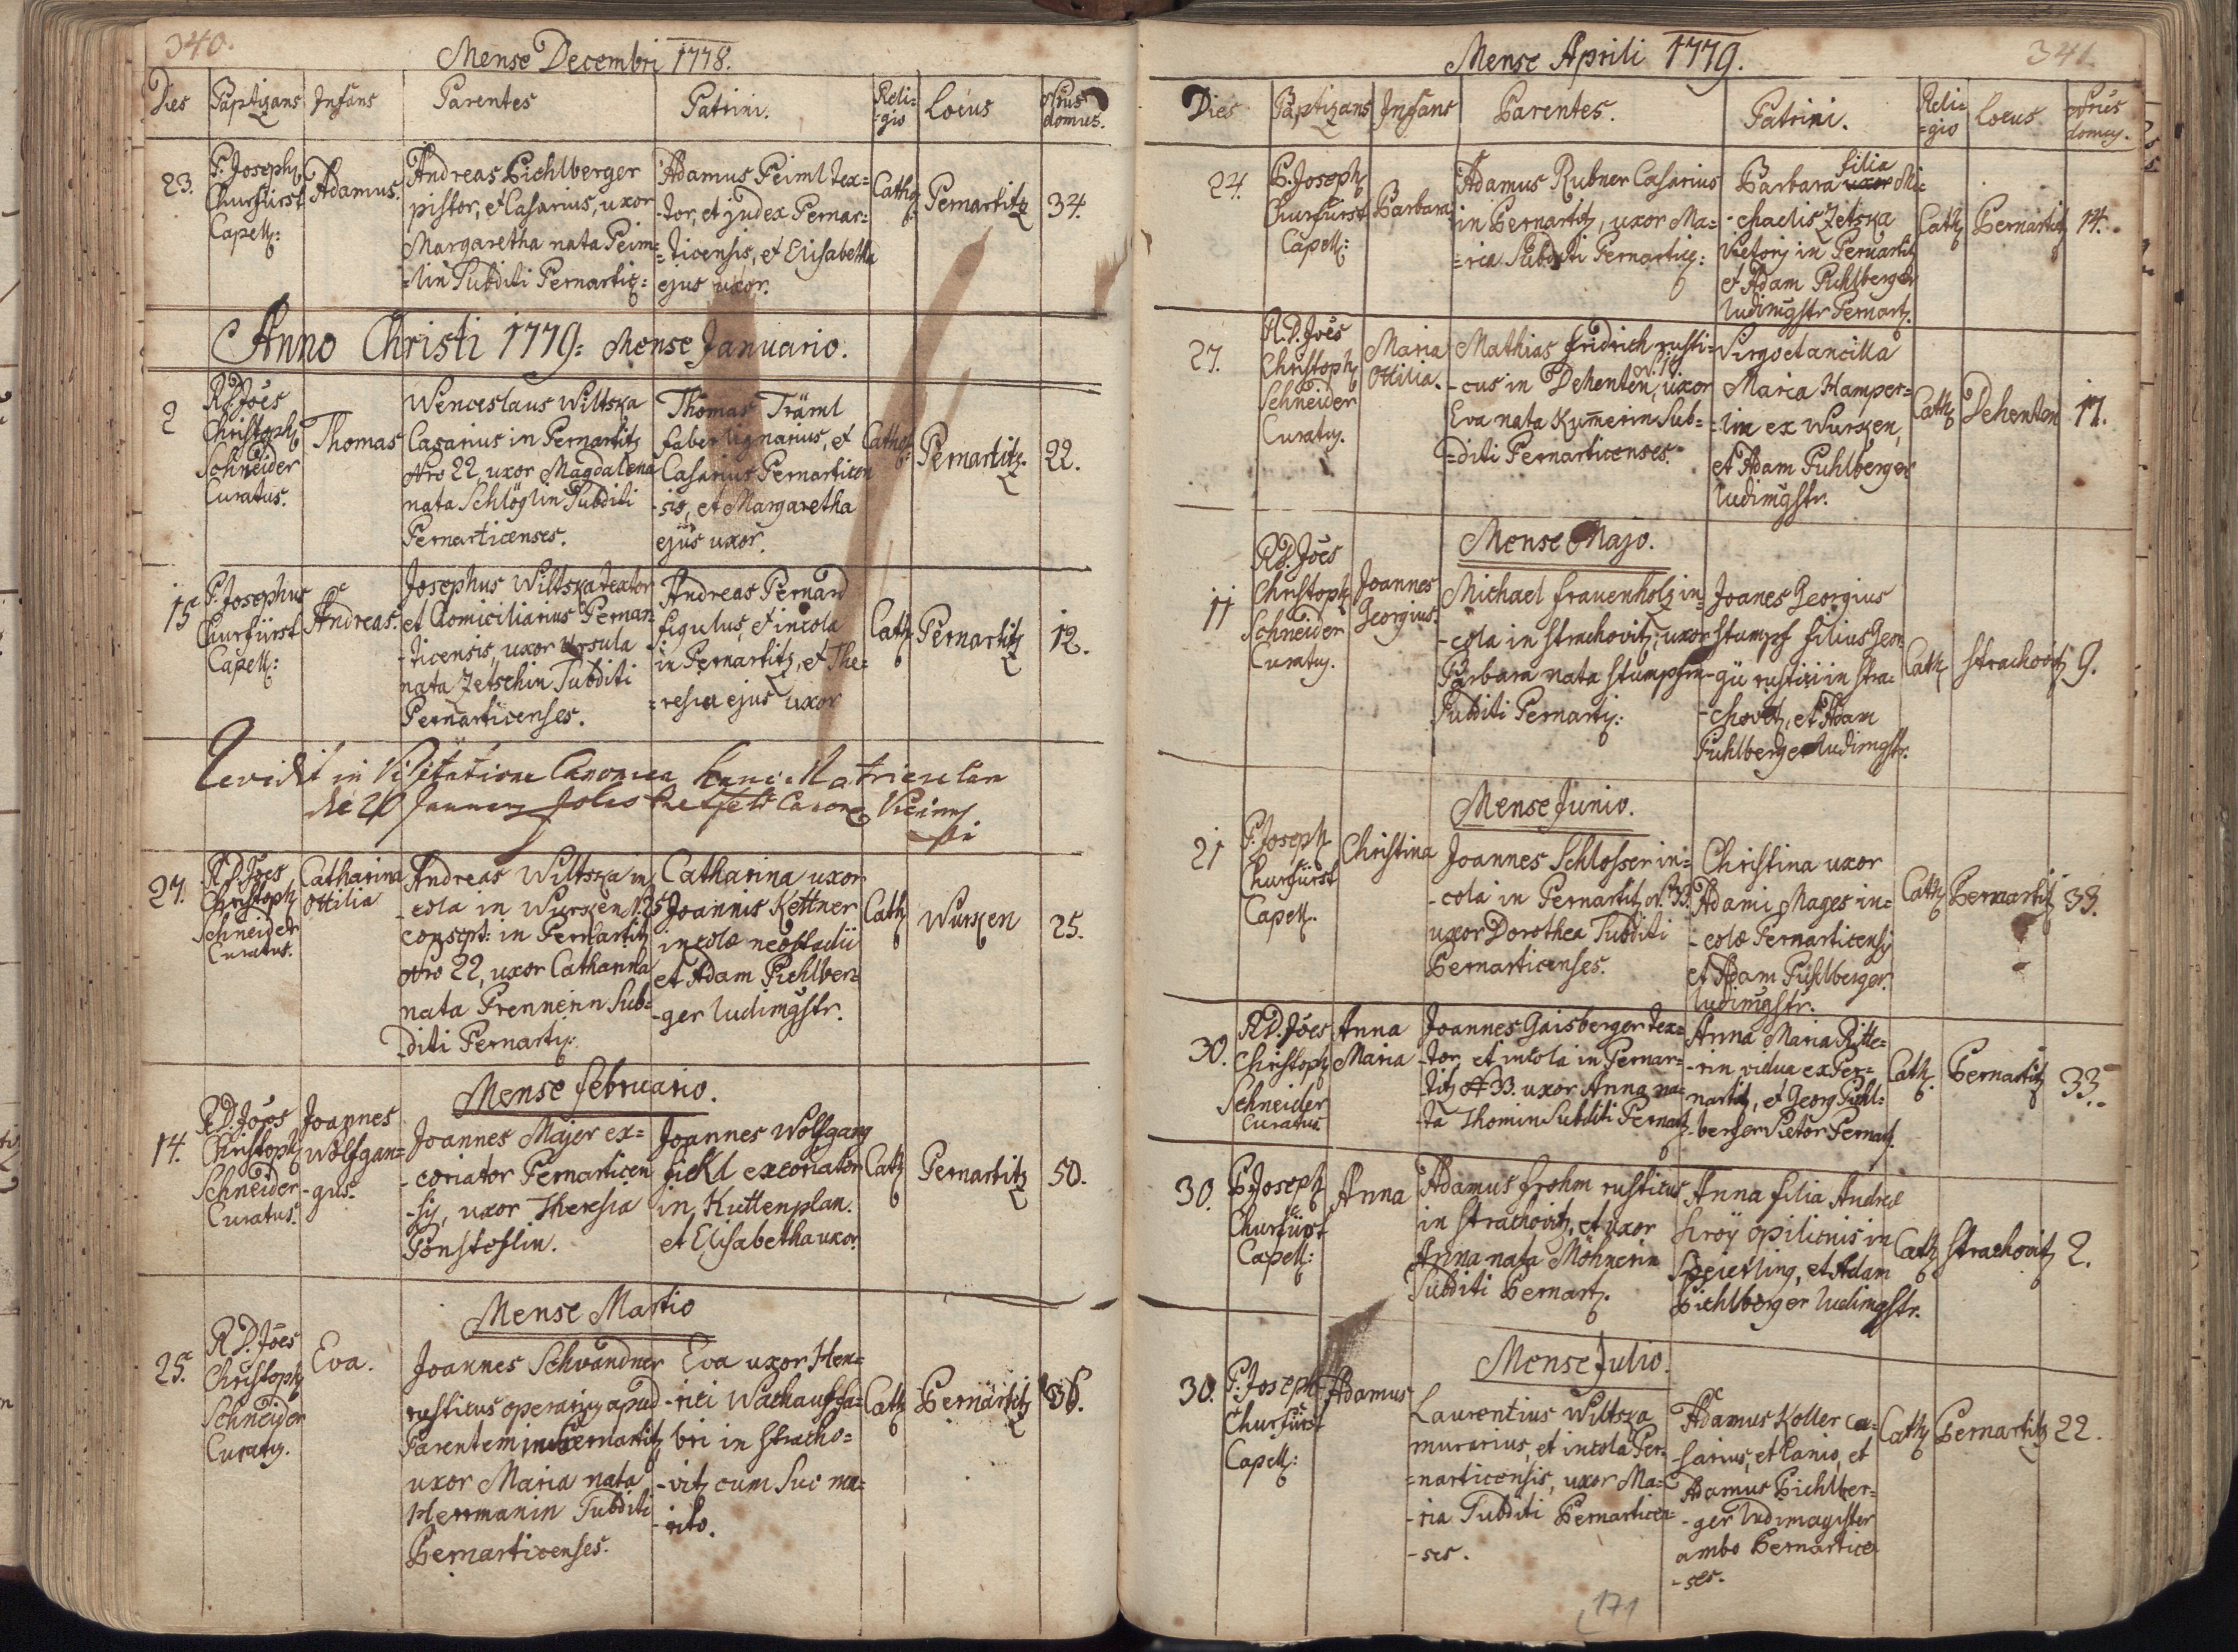 340.
Mense Decembri 1778.
Dies Baptizans Infans Parentes Patrini. Reli=
=gio Locus Nrus
domus.
23.
P. Joseph
Churfürst
Capell:
Adamus.
Andreas Pichlberger
pistor, et Casarius, uxor
Margaretha nata Peim=
=lin Subditi Pernartic:
Adamus Peiml tex=
-tor, et judex Pernar=
=ticensis, et Elisabetha
ejus uxor.
Cath:
Pernartitz
34.
Anno Christi 1779: Mense Januario.
2
R.D. Joes
Christoph
Schneider
Curatus.
Thomas
Wenceslaus Wiltska
Casarius in Pernartitz
Nro 22, uxor Magdalena
nata Schlöglin Subditi
Pernarticenses.
Thomas Träml
faber lignarius, et
Casarius Pernarticen
-sis, et Margaretha
ejus uxor.
Cath:
Pernartitz
22.
15
P. Josephus
Churfürst
Capell:
Andreas.
Josephus Wiltska textor
et Domiciliarius Pernar=
-ticensis, uxor Ursula
nata Zetschin Subditi
Pernarticenses.
Andreas Pernard
figulus, et incola
in Pernartitz, et The=
=resia ejus uxor
Cath
Pernartitz
12.
Revidit in Visitatione Canonica hanc Matriculam
27.
R.D. Joes
Christoph
Schneider
Curatus.
Catharina
Ottilia
Andreas Wiltska in
-cola in Wurken N. 25
conscpt: in Pernartitz
Nro 22, uxor Catharina
nata Prennerin Sub=
-diti Pernartz:
Catharina uxor
Joannis Kettner
incolæ neostadii
et Adam Pichlber=
-ger ludimgstr.
Cath
Wurken
25.
Mense Februario.
14.
R.D. Joes
Christoph
Schneider
Curatus.
Joannes
Wolfgan=
-gus.
Joannes Majer ex=
-coriator Pernarticen
-sis, uxor Theresia
Ponstoslin.
Joannes Wolfgang
Fickl excoriator
in Kuttenplan.
et Elisabetha uxor.
Cath
Pernartitz
50.
Mense Martio
25.
R.D. Joes
Christoph
Schneider
Curatus.
Eva.
Joannes Schwandner
rusticus operarius apud
Parentem in Pernartitz
uxor Maria nata
Hermanin Subditi
Pernarticenses.
Eva uxor Hen=
-rici Wachauf fa=
bri in Stracho=
-vitz cum suo ma=
-rito.
Cath
Pernartitz
36.
341.
Mense Aprili 1779.
Dies Baptizans Infans Parentes. Patrini. Reli=
=gio Locus Nrus
domus.
24.
P. Joseph
Churfürst
Capell:
Barbara
Adamus Rubner Casarius
in Pernartitz, uxor Ma=
=ria Subditi Pernartic:
filia
Barbara uxor Mi=
-chaelis Zetska
Vietoris in Pernartitz
et Adam Pichlberger
ludimgstr Pernart.
Cath
Pernartitz
14.
27.
R.D. Joes
Christoph
Schneider
Curatus.
Maria
Ottilia.
Mathias Fridrich rusti=
N. 17.
-cus in Dehenten, uxor
Eva nata Kumerin Sub=
=diti Pernarticenses.
Virgo et ancilla
Maria Hamper=
-lin ex Wurken,
et Adam Pichlberger
ludimgstr.
Cath
Dehenten
17.
Mense Majo.
11
R.D. Joes
Christoph
Schneider
Curatus.
Joannes
Georgius.
Michael Frauenholz in=
-cola in Strachovitz, uxor
Barbara nata Stumpfin
Subditi Pernartz:
Joanes Georgius
Stumpf filius Geor
-gii rustici in Stra=
-chovitz, et Adam
Pichlberger ludimgstr.
Cath
Strachovitz
9.
Mense Junio.
21
P. Joseph
Churfürst
Capell.
Christina
Joannes Schlosser in=
-cola in Pernartitz N. 33.
uxor Dorothea Subditi
Pernarticenses.
Christina uxor
Adami Mages in=
-colæ Pernarticensis
et Adam Pichlberger
ludimgstr.
Cath
Pernartitz
33.
30.
R.D. Joes
Christoph
Schneider
Curatus
Anna
Maria
Joannes Gaisberger tex=
-tor, et incola in Pernar=
titz N 33. uxor Anna na=
-ta Thomin Subditi Pernart.
Anna Maria Ritte=
-rin vidua ex Per=
nartitz, et Georg Pichl=
-berger Vietor Pernart.
Cath.
Pernartitz
33.
30.
P. Joseph
Churfürst
Capell:
Anna
Adamus Frohm rusticus
in Strachovitz, et uxor
Anna nata Möhnerin
Subditi Pernart.
Anna filia Andreæ
Kroy opilionis in
Speierling, et Adam
Pichlberger ludimgstr.
Cath
Strachovitz
2.
Mense Julio.
30.
P. Joseph
Churfürst
Capell:
Adamus
Laurentius Wiltska
murarius, et incola Per=
=narticensis, uxor Ma=
-ria Subditi Pernarticen=
-ses.
Adamus Koller ca=
-sarius, et lanio, et
Adamus Pichlber=
-ger ludimagister
ambo Pernarticen
-ses.
Cath
Pernartitz
22.
171